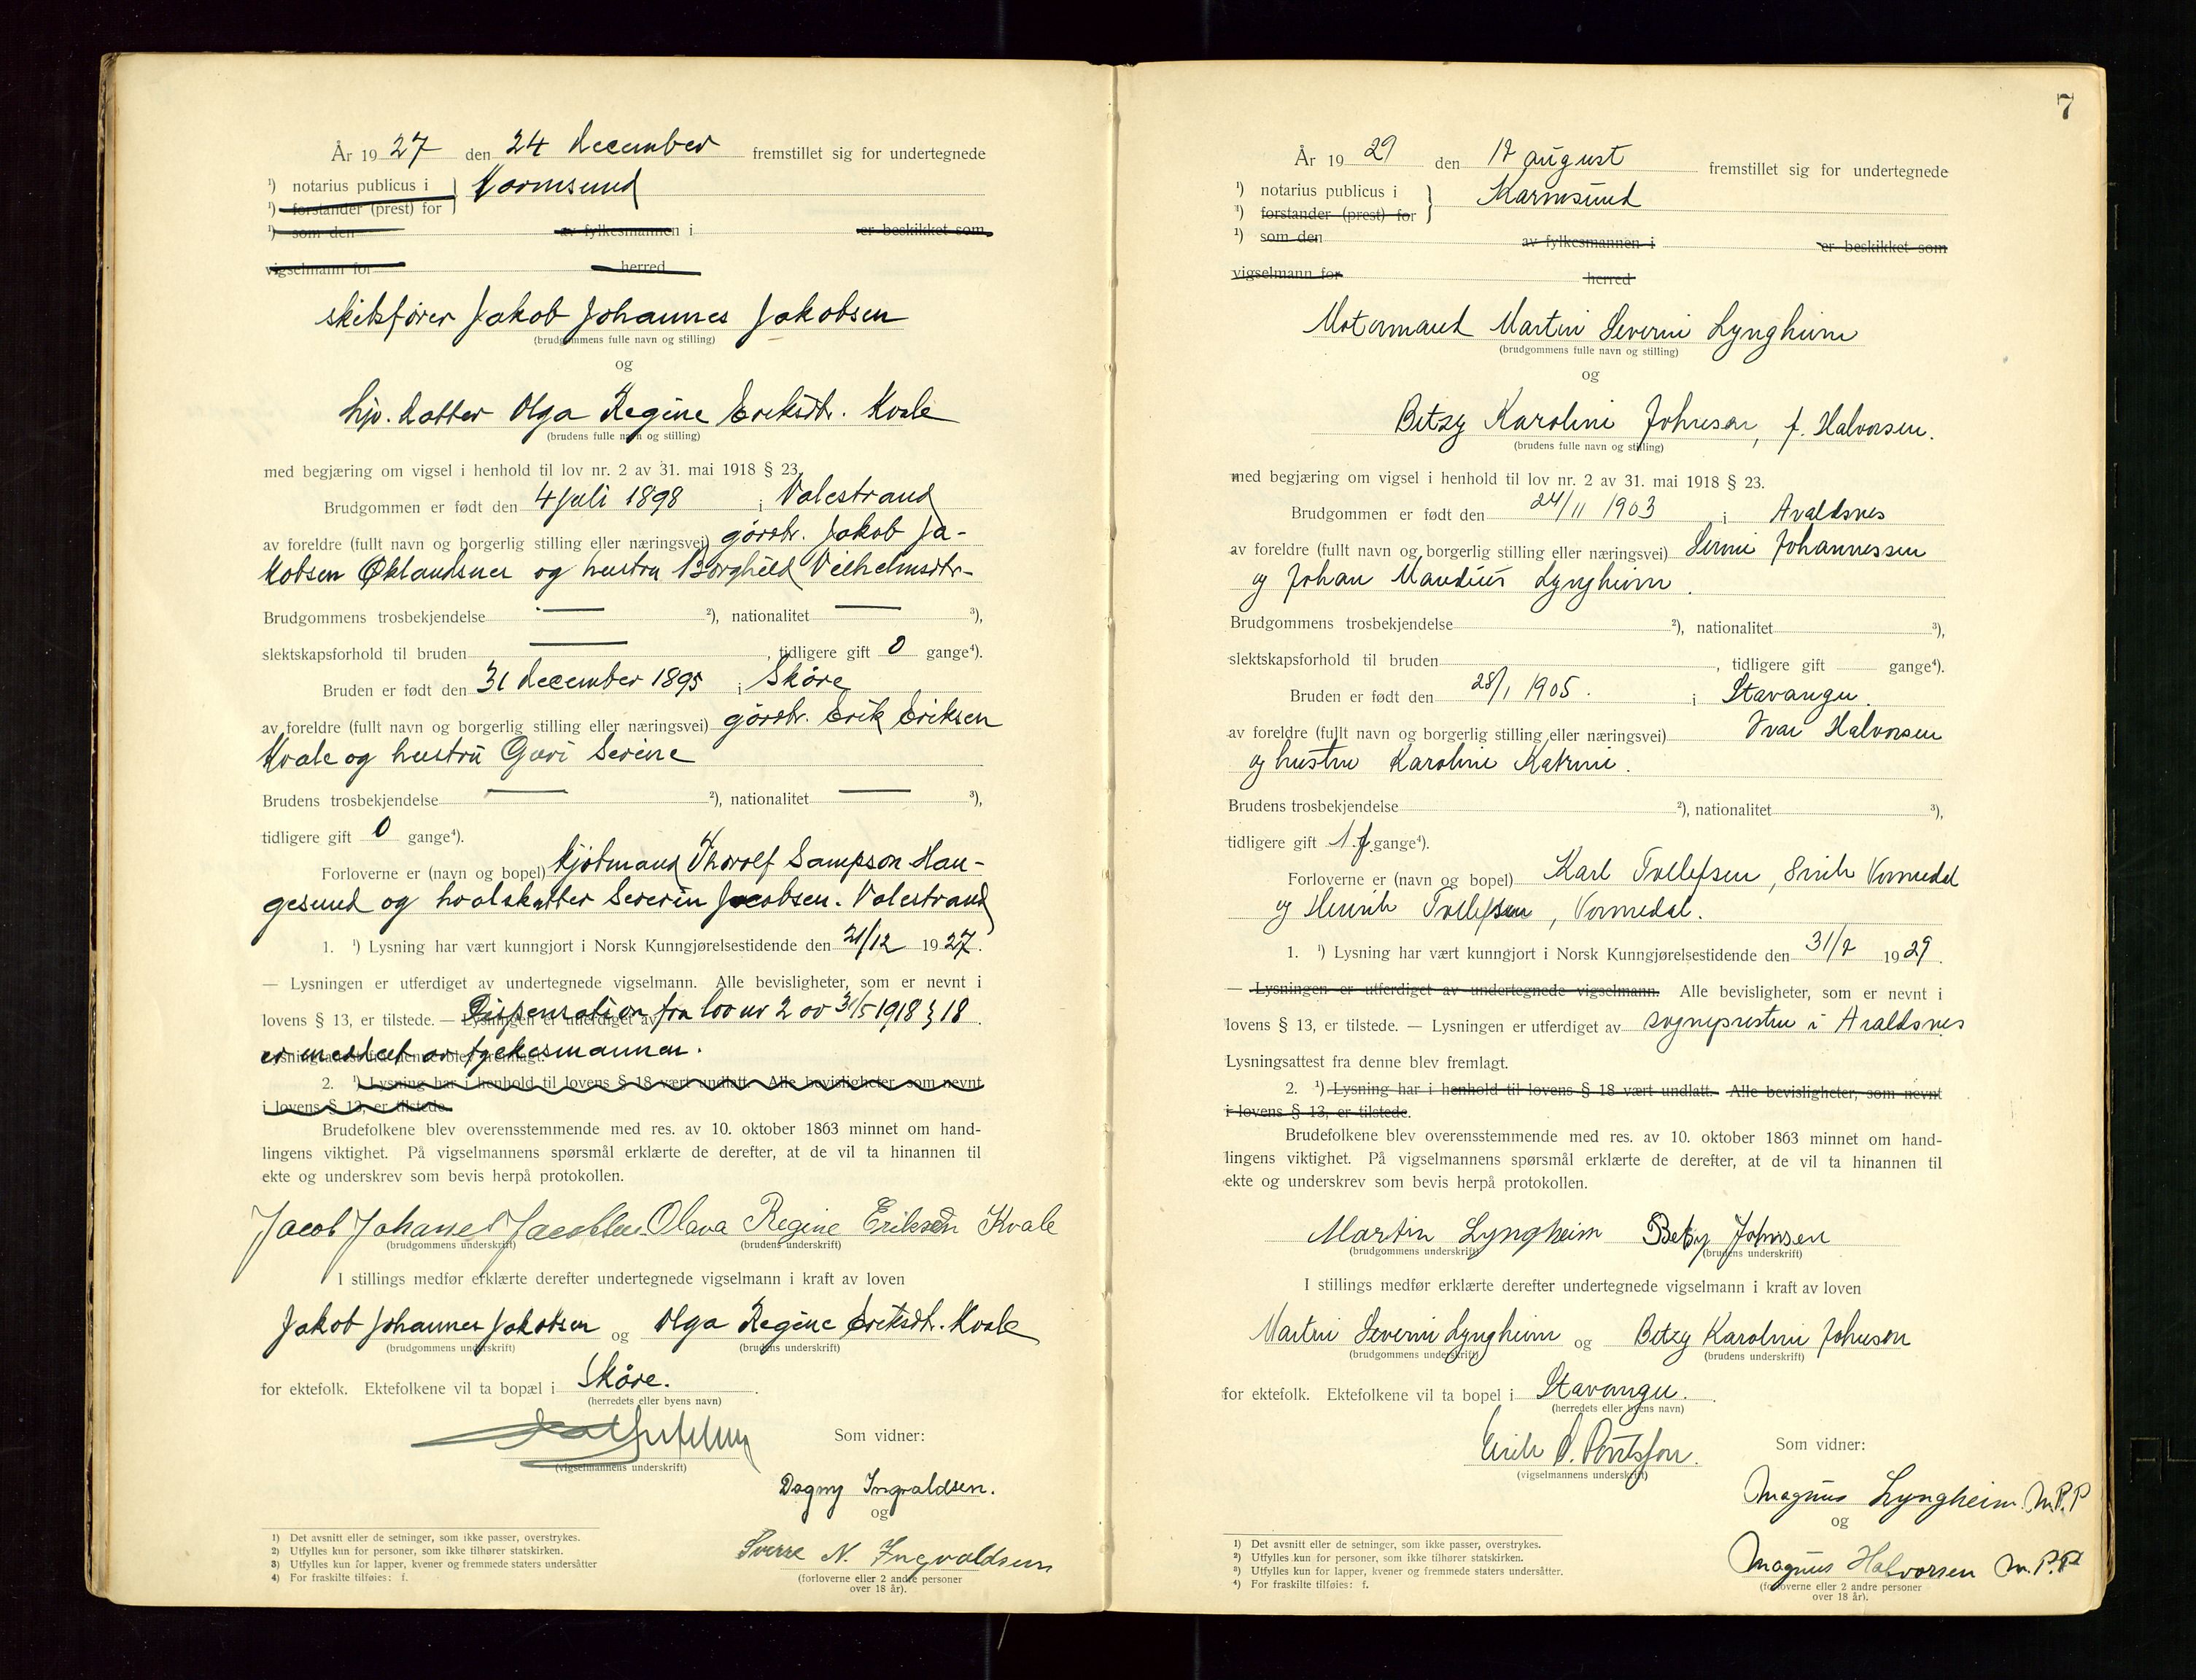 År 19 27 den 24 december fremstillet sig for undertegnede
¹) notarius publicus i } Karmsund
¹) forstander (prest) for
¹) som den av fylkesmannen i er beskikket som
vigselmann for herred
skibsfører Jakob Johannes Jakobsen
(brudgommens fulle navn og stilling)
og
hjv. datter Olga Regine Eriksdtr. Kvale
(brudens fulle navn og stilling)
med begjæring om vigsel i henhold til lov nr. 2 av 31. mai 1918 § 23.
Brudgommen er født den 4 juli 1898 i Valestrand
av foreldre (fullt navn og borgerlig stilling eller næringsvei) gårdbr. Jakob Ja-
kobsen Øklandsnes og hustru Borghild Vilhelmsdtr.
Brudgommens trosbekjendelse — ²), nationalitet — ³),
slektskapsforhold til bruden — , tidligere gift 0 gange⁴).
Bruden er født den 31 december 1895 i Skåre
av foreldre (fullt navn og borgerlig stilling eller næringsvei) gårdbr. Erik Eriksen
Kvale og hustru Guri Serine
Brudens trosbekjendelse — ²), nationalitet — ³),
tidligere gift 0 gange⁴).
Forloverne er (navn og bopel) kjøbmand Thorolf Sampson Hau-
gesund og hvalskytter Severin Jacobsen. Valestrand
1. ¹) Lysning har vært kunngjort i Norsk Kunngjørelsestidende den 21/12 19 27.
— Lysningen er utferdiget av undertegnede vigselmann. Alle bevisligheter, som er nevnt i
lovens § 13, er tilstede. — Lysningen er utferdiget av Dispensation fra lov nr 2 av 31/5 1918 § 18
Lysningsattest fra denne blev fremlagt. er meddelt av fylkesmannen.
2. ¹) Lysning har i henhold til lovens § 18 vært undlatt. Alle bevisligheter, som nevnt
i lovens § 13, er tilstede.
Brudefolkene blev overensstemmende med res. av 10. oktober 1863 minnet om hand-
lingens viktighet. På vigselmannens spørsmål erklærte de derefter, at de vil ta hinannen til
ekte og underskrev som bevis herpå protokollen.
Jacob Johanes Jacobsen Olava Regine Eriksen Kvale
(brudgommens underskrift) (brudens underskrift)
I stillings medfør erklærte derefter undertegnede vigselmann i kraft av loven
Jakob Johannes Jakobsen og Olga Regine Eriksdtr. Kvale
(brudgommens underskrift) (brudens underskrift)
for ektefolk. Ektefolkene vil ta bopæl i Skåre.
(herredets eller byens navn)
Som vidner:
(vigselmannens underskrift)
Dagny Ingvaldsen.
og
Sverre N. Ingvaldsen
(forloverne eller 2 andre personer
over 18 år).
1) Det avsnitt eller de setninger, som ikke passer, overstrykes.
2) Utfylles kun for personer, som ikke tilhører statskirken.
3) Utfylles kun for lapper, kvener og fremmede staters undersåtter
4) For fraskilte tilføies: f.
7
År 19 29 den 12 august fremstillet sig for undertegnede
¹) notarius publicus i } Karmsund
¹) forstander (prest) for
¹) som den av fylkesmannen i er beskikket som
vigselmann for herred
Motormand Martin Severin Lyngheim
(brudgommens fulle navn og stilling)
og
Betzy Karoline Johnsen, f. Halvorsen.
(brudens fulle navn og stilling)
med begjæring om vigsel i henhold til lov nr. 2 av 31. mai 1918 § 23.
Brudgommen er født den 24/11 1903 i Avaldsnes
av foreldre (fullt navn og borgerlig stilling eller næringsvei) Serine Johannessen
og Johan Mandius Lyngheim.
Brudgommens trosbekjendelse ²), nationalitet ³),
slektskapsforhold til bruden , tidligere gift gange⁴).
Bruden er født den 28/1 1905. i Stavanger.
av foreldre (fullt navn og borgerlig stilling eller næringsvei) Ivar Halvorsen
og hustru Karoline Katrine.
Brudens trosbekjendelse ²), nationalitet ³),
tidligere gift 1. f. gange⁴).
Forloverne er (navn og bopel) Karl Tollefsen, Vormedal
og Henrik Tollefsen, Vormedal.
1. ¹) Lysning har vært kunngjort i Norsk Kunngjørelsestidende den 31/7 19 29.
— Lysningen er utferdiget av undertegnede vigselmann. Alle bevisligheter, som er nevnt i
lovens § 13, er tilstede. — Lysningen er utferdiget av sognepresten i Avaldsnes
Lysningsattest fra denne blev fremlagt.
2. ¹) Lysning har i henhold til lovens § 18 vært undlatt. Alle bevisligheter, som nevnt
i lovens § 13, er tilstede.
Brudefolkene blev overensstemmende med res. av 10. oktober 1863 minnet om hand-
lingens viktighet. På vigselmannens spørsmål erklærte de derefter, at de vil ta hinannen til
ekte og underskrev som bevis herpå protokollen.
Martin Lyngheim Betsy Johnsen
(brudgommens underskrift) (brudens underskrift)
I stillings medfør erklærte derefter undertegnede vigselmann i kraft av loven
Martin Severin Lyngheim og Betzy Karoline Johnsen
(brudgommens underskrift) (brudens underskrift)
for ektefolk. Ektefolkene vil ta bopel i Stavanger.
(herredets eller byens navn)
Som vidner:
(vigselmannens underskrift)
Magnus Lyngheim. m.P.P
og
Magnus Halvorsen m.P.P
(forloverne eller 2 andre personer
over 18 år).
¹) Det avsnitt eller de setninger, som ikke passer, overstrykes.
²) Utfylles kun for personer, som ikke tilhører statskirken.
³) Utfylles kun for lapper, kvener og fremmede staters undersåtter.
⁴) For fraskilte tilføies: f.